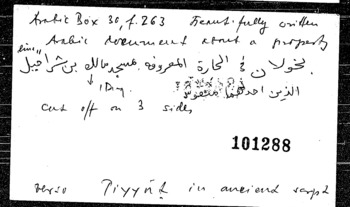 Arabic Box 30, f. 263 Beautifully written
Arabic document about a property
in بخولان في الحارة المعروفة بمسجد مالك بن شراحيل
1 Dim.
الذين احدهما منقوس
cut off on 3 sides
101288
verso Piyyūṭ in ancient script